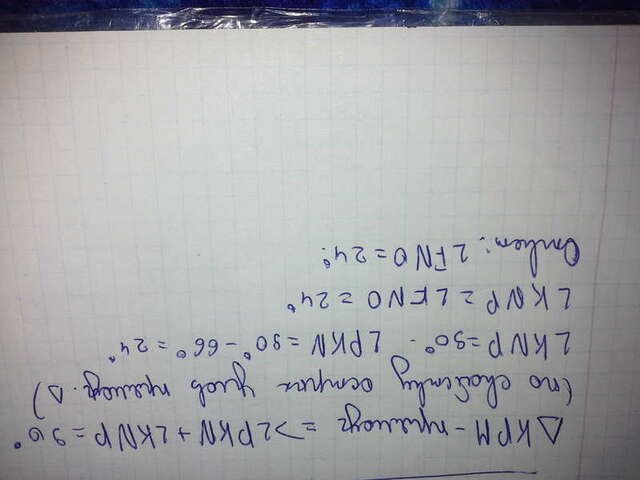 △KPM - прямоуг => ∠PKN + ∠KNP = 90°
(по свойству острых углов прямоуг. △)
∠KNP = 90° - ∠PKN = 90° - 66° = 24°
∠KNP = ∠FNO = 24°
Ответ: ∠FNO = 24°.